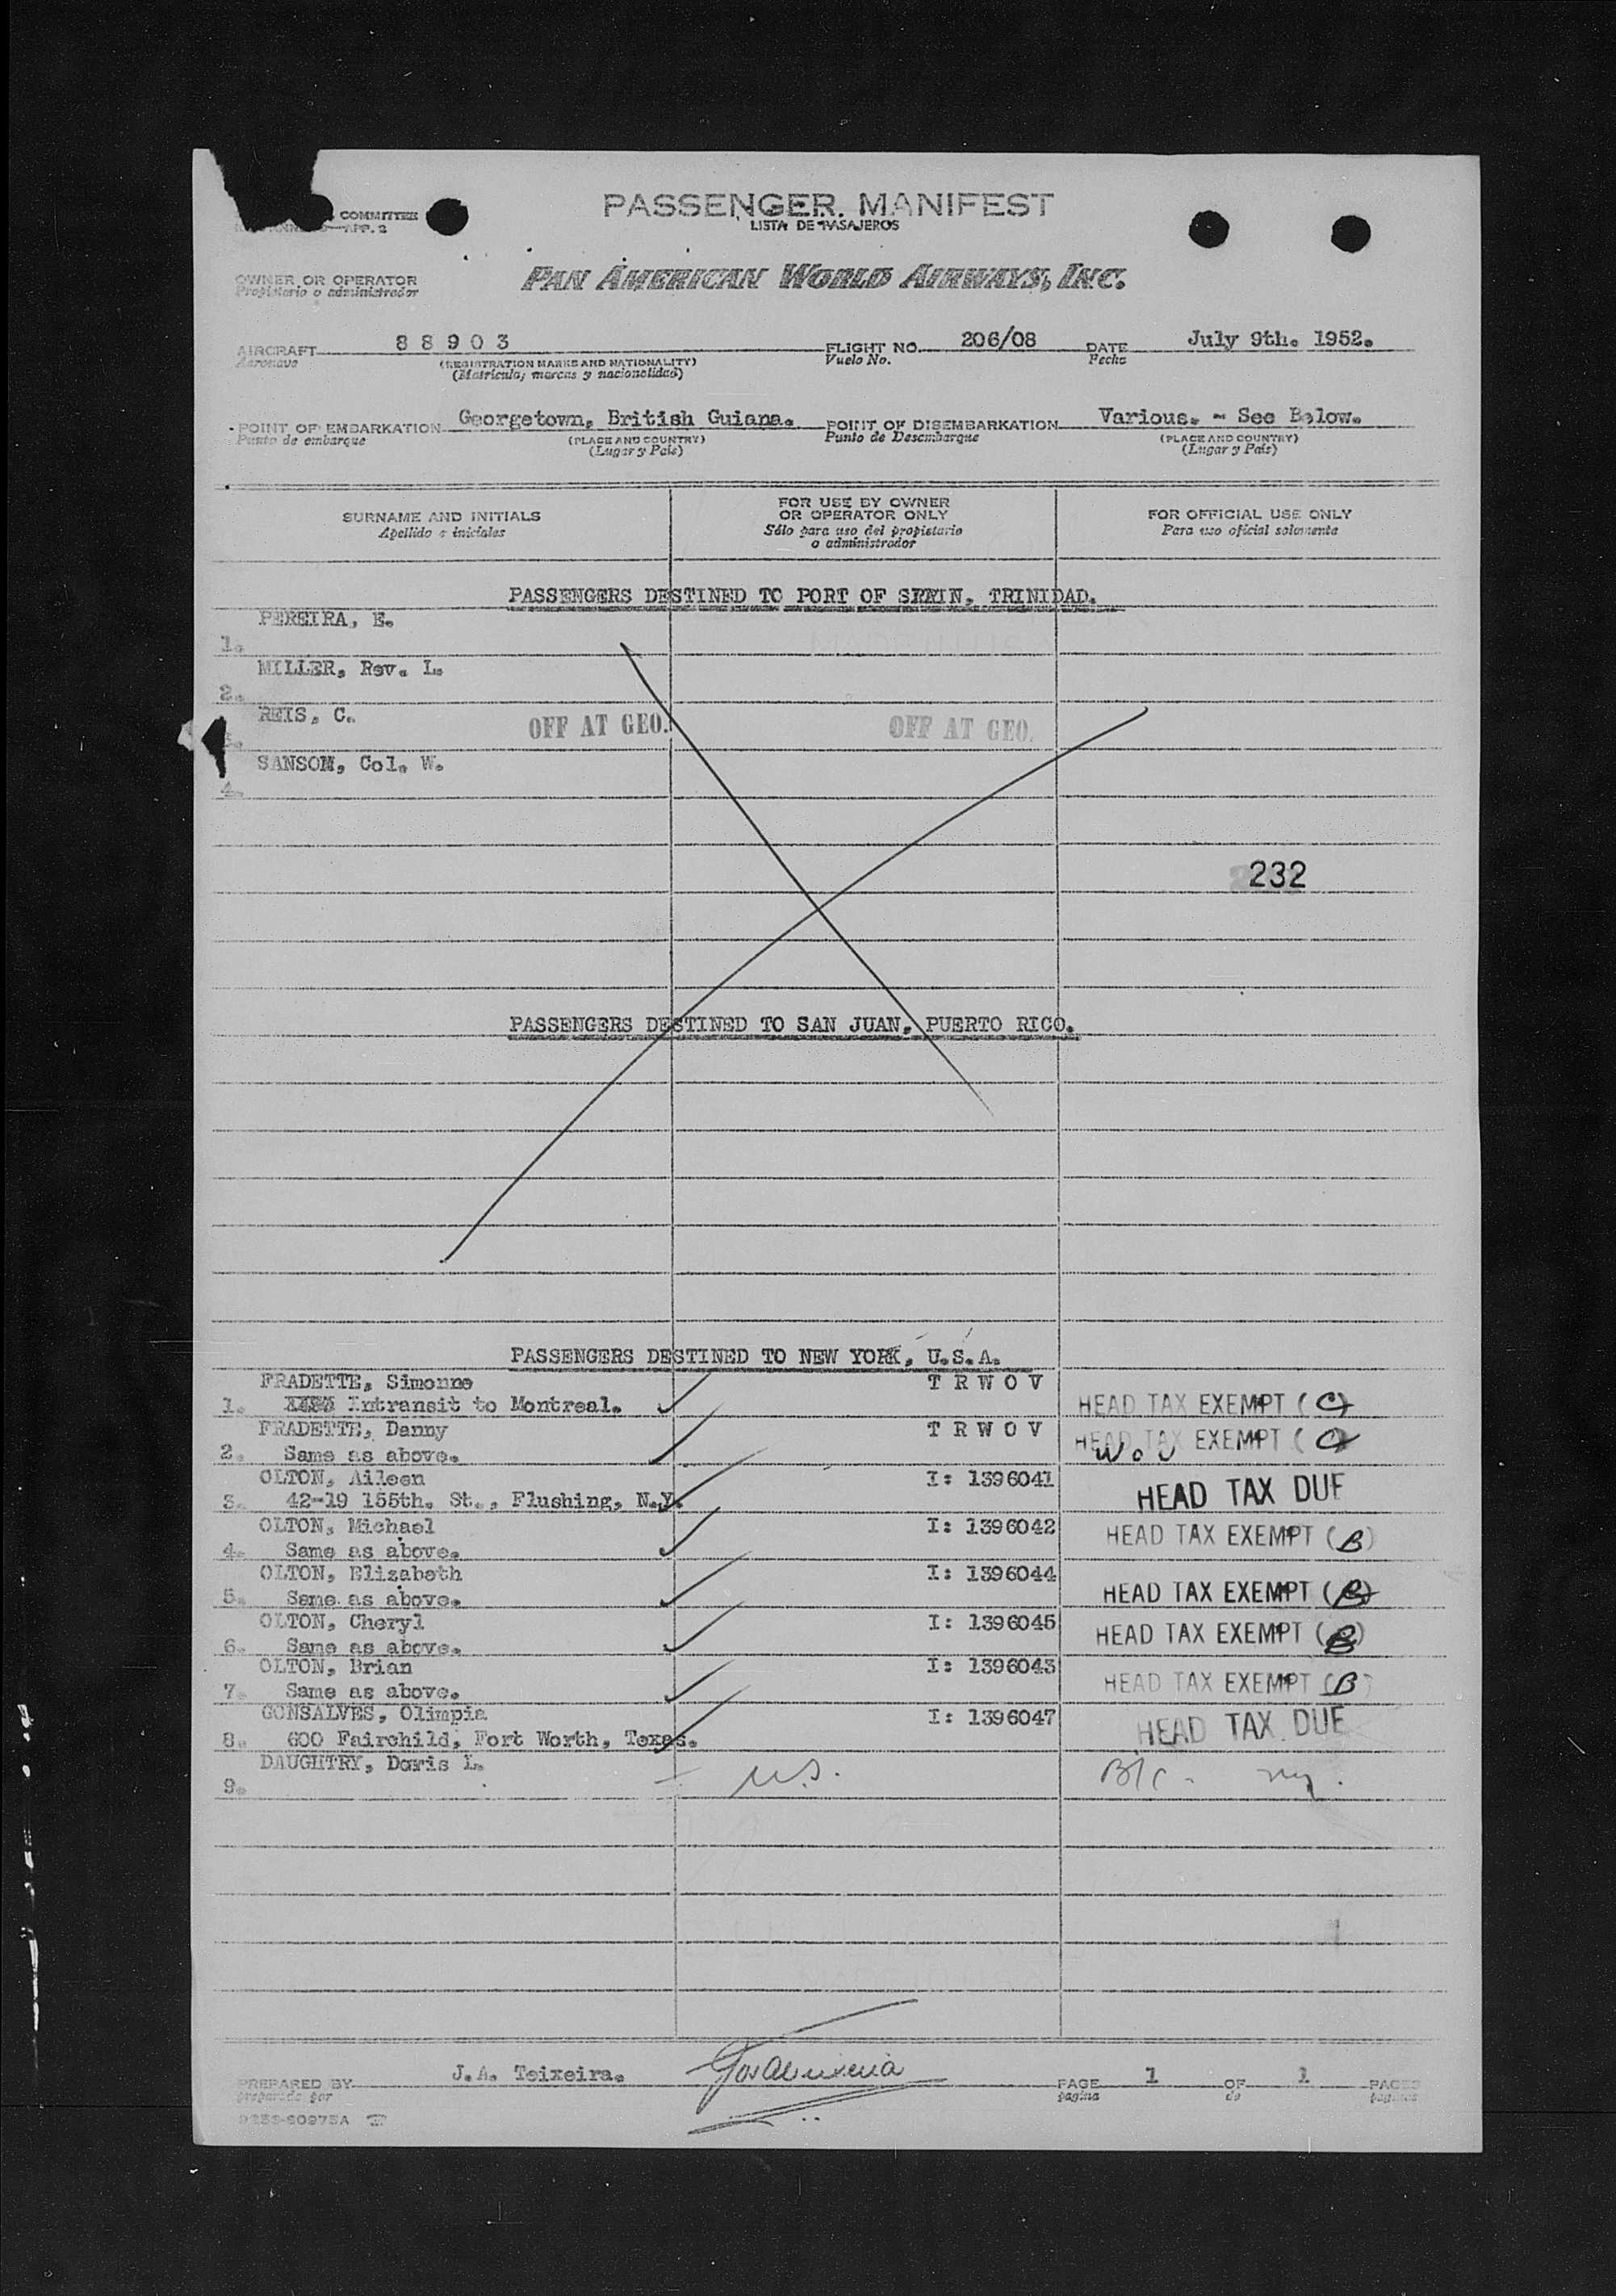 COMMITTEE
APP. 2
PASSENGER MANIFEST
LISTA DE PASAJEROS
OWNER OR OPERATOR
Propietario o administrador
PAN AMERICAN WORLD AIRWAYS, INC.
AIRCRAFT 88903 FLIGHT NO. 206/08 DATE July 9th. 1952.
Aeronave (REGISTRATION MARKS AND NATIONALITY) Vuelo No. Fecha
(Matrícula, marcas y nacionalidad)
POINT OF EMBARKATION Georgetown, British Guiana. POINT OF DISEMBARKATION Various. - See Below.
Punto de embarque (PLACE AND COUNTRY) Punto de Desembarque (PLACE AND COUNTRY)
(Lugar y País) (Lugar y País)
SURNAME AND INITIALS
Apellido e iniciales
FOR USE BY OWNER
OR OPERATOR ONLY
Sólo para uso del propietario
o administrador
FOR OFFICIAL USE ONLY
Para uso oficial solamente
PASSENGERS DESTINED TO PORT OF SPAIN, TRINIDAD.
PEREIRA, E.
1.
MILLER, Rev. L.
2.
REIS, C. OFF AT GEO. OFF AT GEO.
3.
SANSOM, Col. W.
4.
232
PASSENGERS DESTINED TO SAN JUAN, PUERTO RICO.
PASSENGERS DESTINED TO NEW YORK, U.S.A.
FRADETTE, Simonne T R W O V
1. Intransit to Montreal. HEAD TAX EXEMPT (C)
FRADETTE, Danny T R W O V HEAD TAX EXEMPT (C)
2. Same as above. W.O.V
OLTON, Aileen I: 1396041
3. 42-19 155th. St., Flushing, N.Y. HEAD TAX DUE
OLTON, Michael I: 1396042
4. Same as above. HEAD TAX EXEMPT (B)
OLTON, Elizabeth I: 1396044
5. Same as above. HEAD TAX EXEMPT (B)
OLTON, Cheryl I: 1396045
6. Same as above. HEAD TAX EXEMPT (B)
OLTON, Brian I: 1396043
7. Same as above. HEAD TAX EXEMPT (B)
GONSALVES, Olimpia I: 1396047
8. 600 Fairchild, Fort Worth, Texas. HEAD TAX DUE
DAUGHTRY, Doris L.
9. U.S. B/C - ny.
PREPARED BY J.A. Teixeira. PAGE 1 OF 1 PAGES
preparado por página de páginas